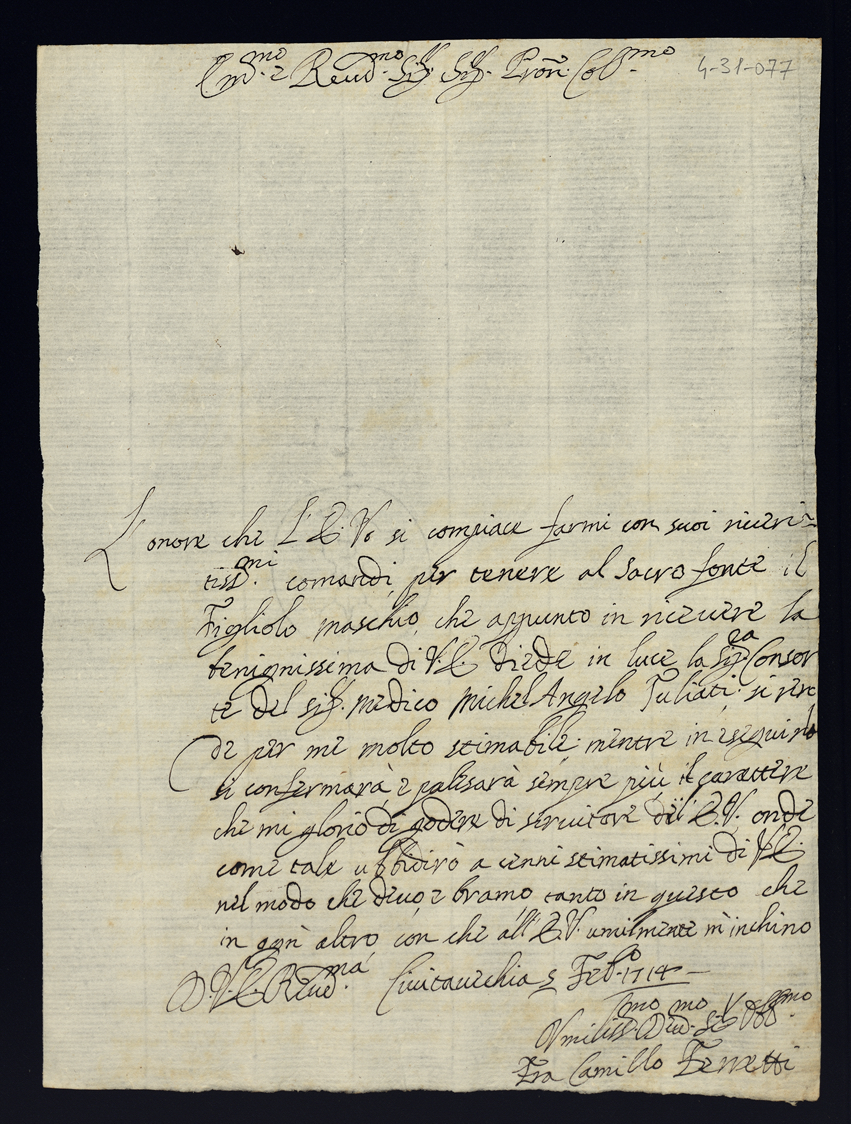 Em.mo e Reud.mo Sig.r Sig.r Pron Col.mo
4-31-077
L'onore che l'E.V. si compiace farmi con suoi riceri-
tiss.mi comandi, per tenere al sacro fonte il
Figliolo maschio, che appunto in riceuere la
benignissima di V.E. diede in luce la Sig.ra Consor
te del sig.r medico Michel Angelo Iuliati: si ren
de per me molto stimabile mentre in eseguirlo
si confermarà, e palesarà sempre più il carattere
che mi glorio di godere di seruitore dell'E.V. onde
come tale ubbidirò a cenni stimatissimi di V.E.
nel modo che deuo e bramo tanto in questo che
in ogni altro con che all'E.V. umilmente m'inchino
D.V.E. Reud.ma Ciuitauechia 5 Feb.o 1714
Vmiliss.mo Deu.mo Se.r Obb.mo
Fra Camillo Ferretti